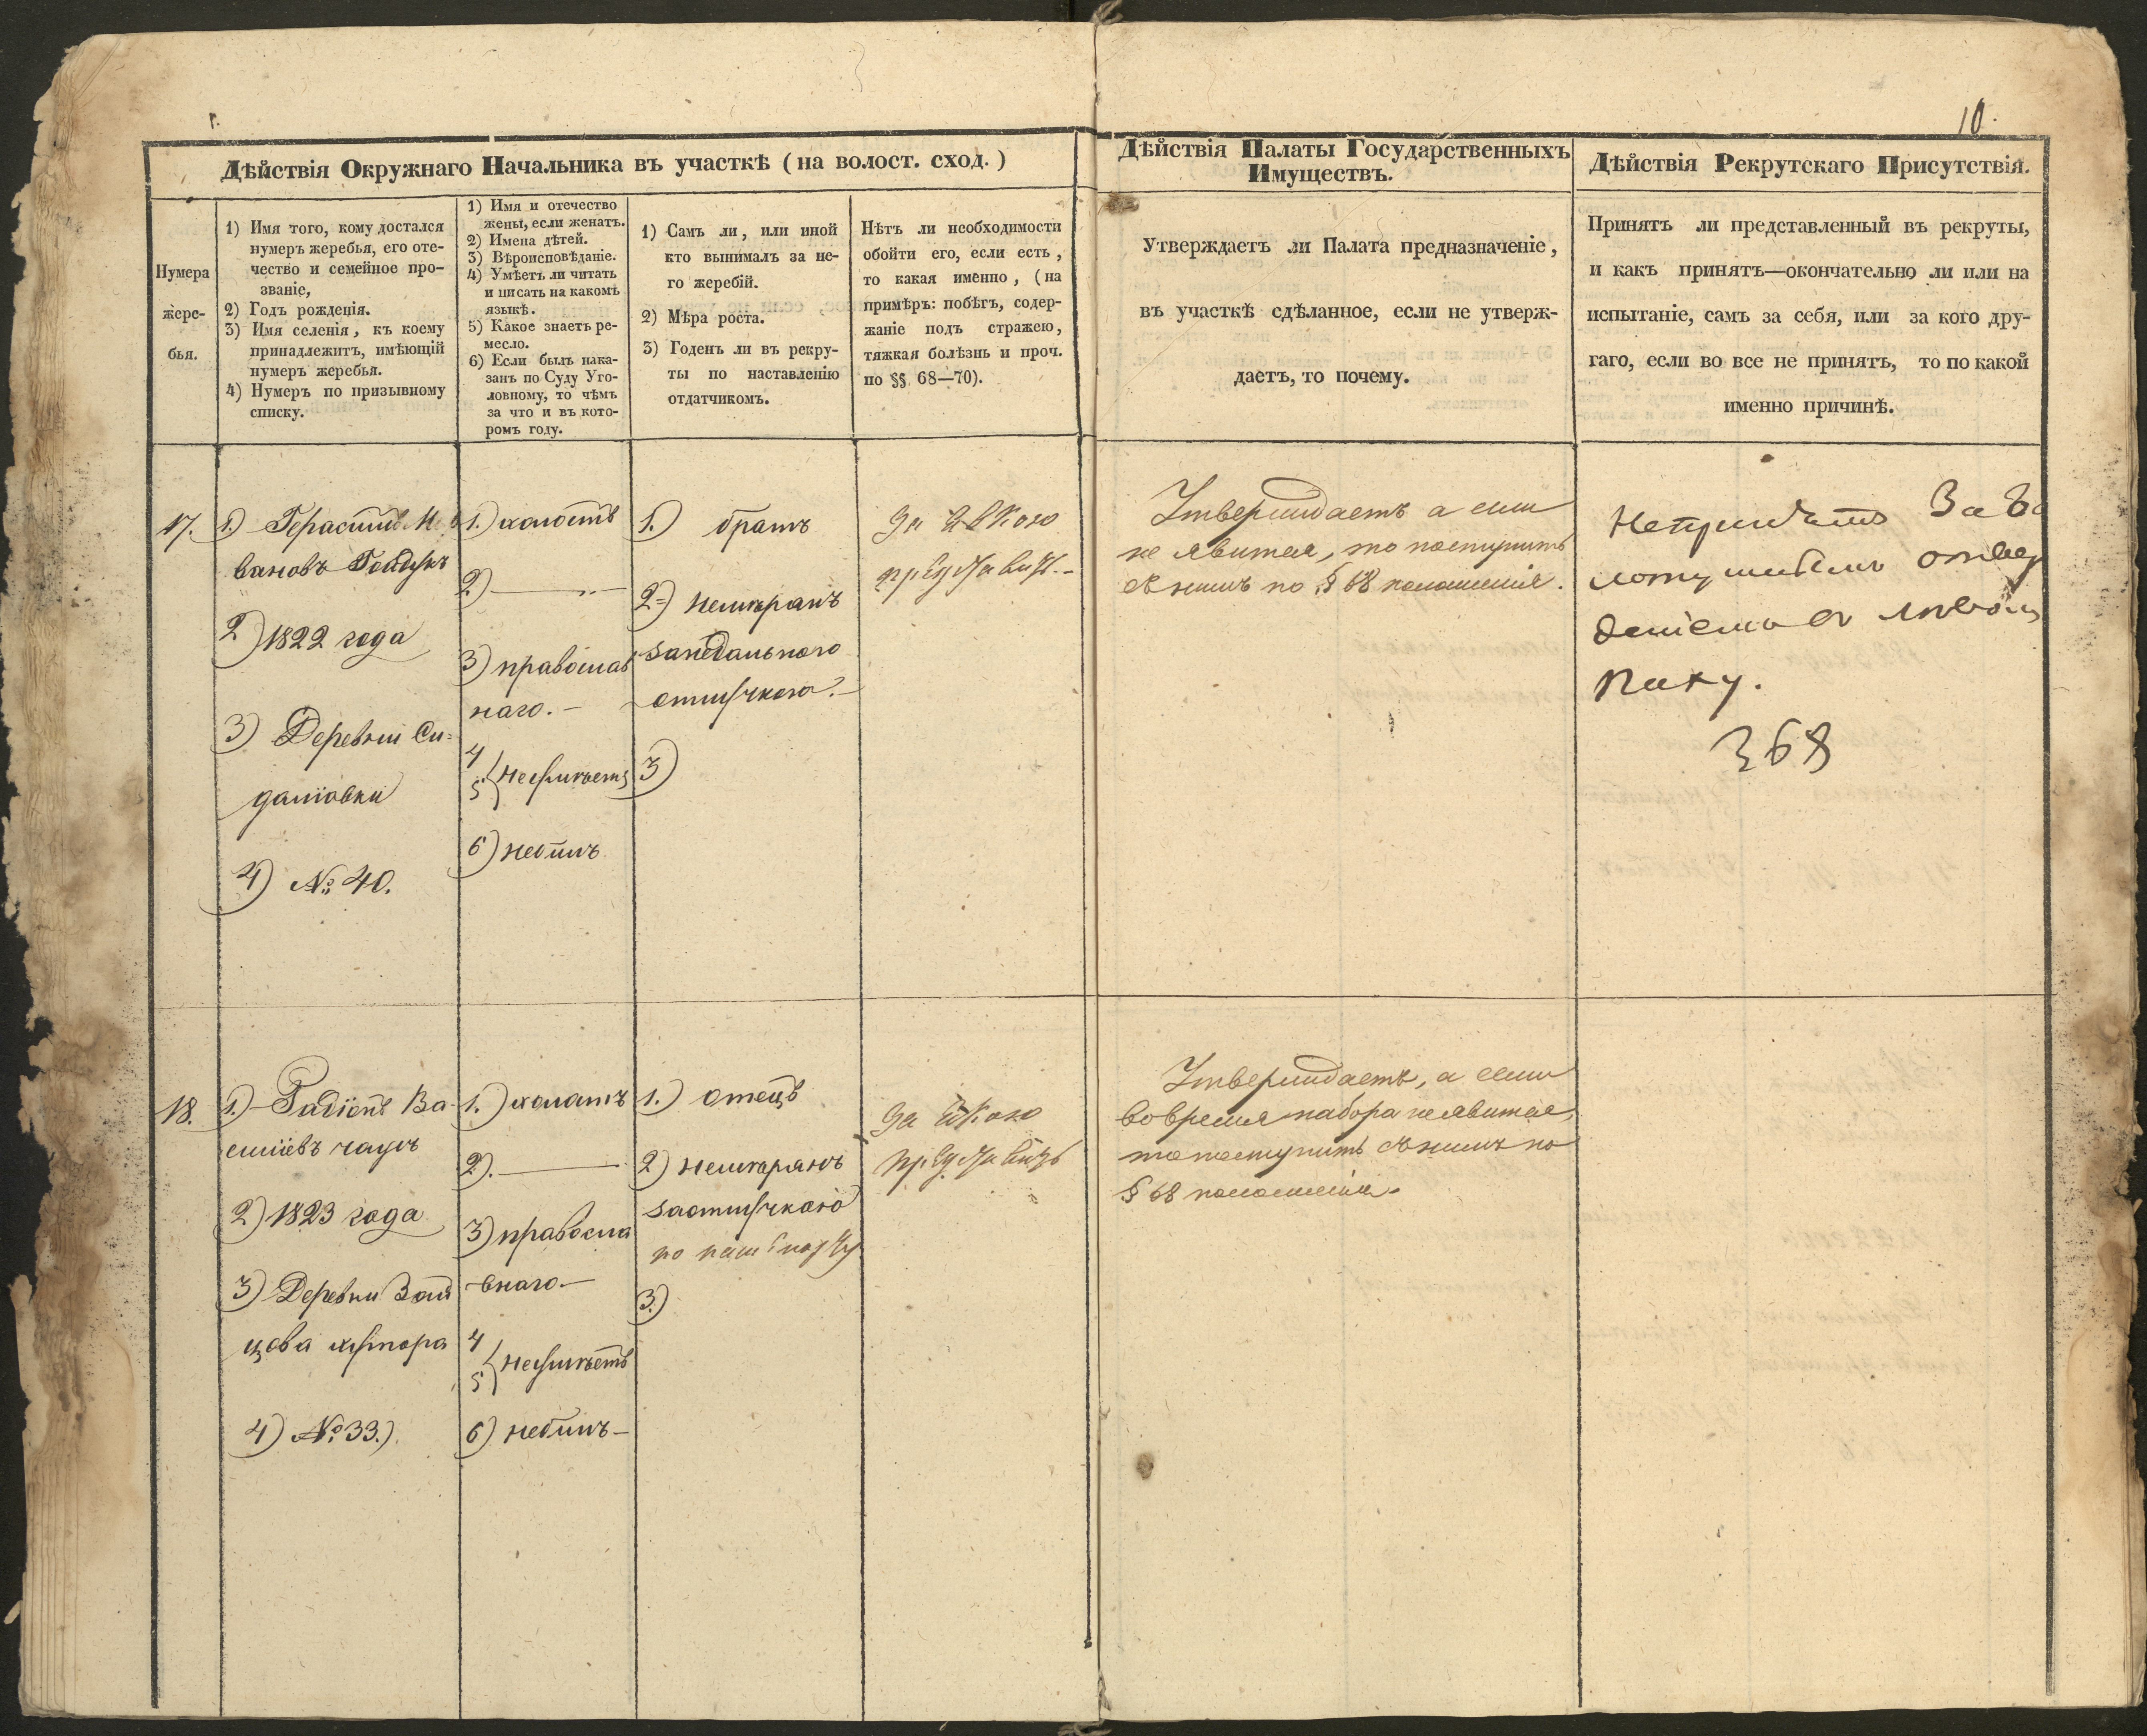 10.
Дѣйствія Окружнаго Начальника въ участкѣ (на волост. сход.)
Нумера
жере-
бья.
1) Имя того, кому достался
нумеръ жеребья, его оте-
чество и семейное про-
званіе,
2) Годъ рожденія.
3) Имя селенія, къ коему
принадлежитъ, имѣющій
нумеръ жеребья.
4) Нумеръ по призывному
списку.
1) Имя и отечество
жены, если женатъ.
2) Имена дѣтей.
3) Вѣроисповѣданіе.
4) Умѣетъ ли читать
и писать на какомъ
языкѣ.
5) Какое знаетъ ре-
месло.
6) Если былъ нака-
занъ по Суду Уго-
ловному, то чѣмъ
за что и въ кото-
ромъ году.
1) Самъ ли, или иной
кто вынималъ за не-
го жеребій.
2) Мѣра роста.
3) Годенъ ли въ рекру-
ты по наставленію
отдатчикомъ.
Нѣтъ ли необходимости
обойти его, если есть,
то какая именно, (на
примѣръ: побѣгъ, содер-
жаніе подъ стражею,
тяжкая болѣзнь и проч.
по §§ 68—70).
Дѣйствія Палаты Государственныхъ
Имуществъ.
Утверждаетъ ли Палата предназначеніе,
въ участкѣ сдѣланное, если не утверж-
даетъ, то почему.
Дѣйствія Рекрутскаго Присутствія.
Принятъ ли представленный въ рекруты,
и какъ принятъ—окончательно ли или на
испытаніе, самъ за себя, или за кого дру-
гаго, если во все не принятъ, то по какой
именно причинѣ.
17.
1) Герасимъ И
вановъ
2) 1822 года
3) Деревни Си-
даловки
4) № 40.
1.) холостъ
2.) —
3) православ
наго. —
4
5 } неумѣетъ
6) небылъ
1.) братъ
2) неизмѣранъ
за
отлучкою. —
3)
За явкою
представить. —
Утверждаетъ а если
не явится, то поступить
съ нимъ по § 68 положенія.
Непринятъ За
въ лѣвомъ
паху.
368
18.
1.) Радіонъ Ва-
силіевъ
2) 1823 года
3) Деревни Зай
цова хутора
4) № 33.)
1.) холостъ
2). —
3) правосла
-внаго —
4
5 } неумѣетъ
6) небылъ —
1.) отецъ
2) неизмѣранъ
за отлучкою
по пашпорту
3.)
За явкою
представить
Утверждаетъ, а если
во время набора не явится,
то поступить съ нимъ по
§ 68 положенія.